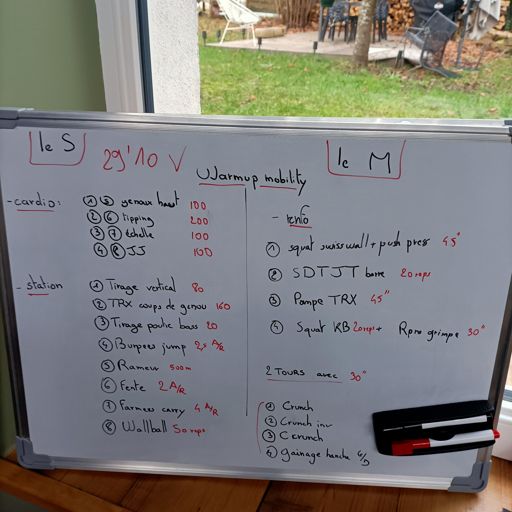 le S
29'10 V
Warmup mobility
- cardio:
① ⑤ genoux haut 100
② ⑥ tipping 200
③ ⑦ échelle 100
④ ⑧ JJ 100
- station
① Tirage vertical 80
② TRX coups de genou 160
③ Tirage poulie basse 20
④ Burpees jump 2,5 A/R
⑤ Rameur 500m
⑥ Fente 2 A/R
⑦ Farmers carry 4 A/R
⑧ Wallball 50 reps
le M
- renfo
① squat swisswall + push press 45"
② SDTJT barre 20 reps
③ Pompe TRX 45"
④ Squat KB 20 reps + grimpe 30"
2 TOURS avec 30"
① Crunch
② Crunch inv
③ C crunch
④ gainage hanche G/D